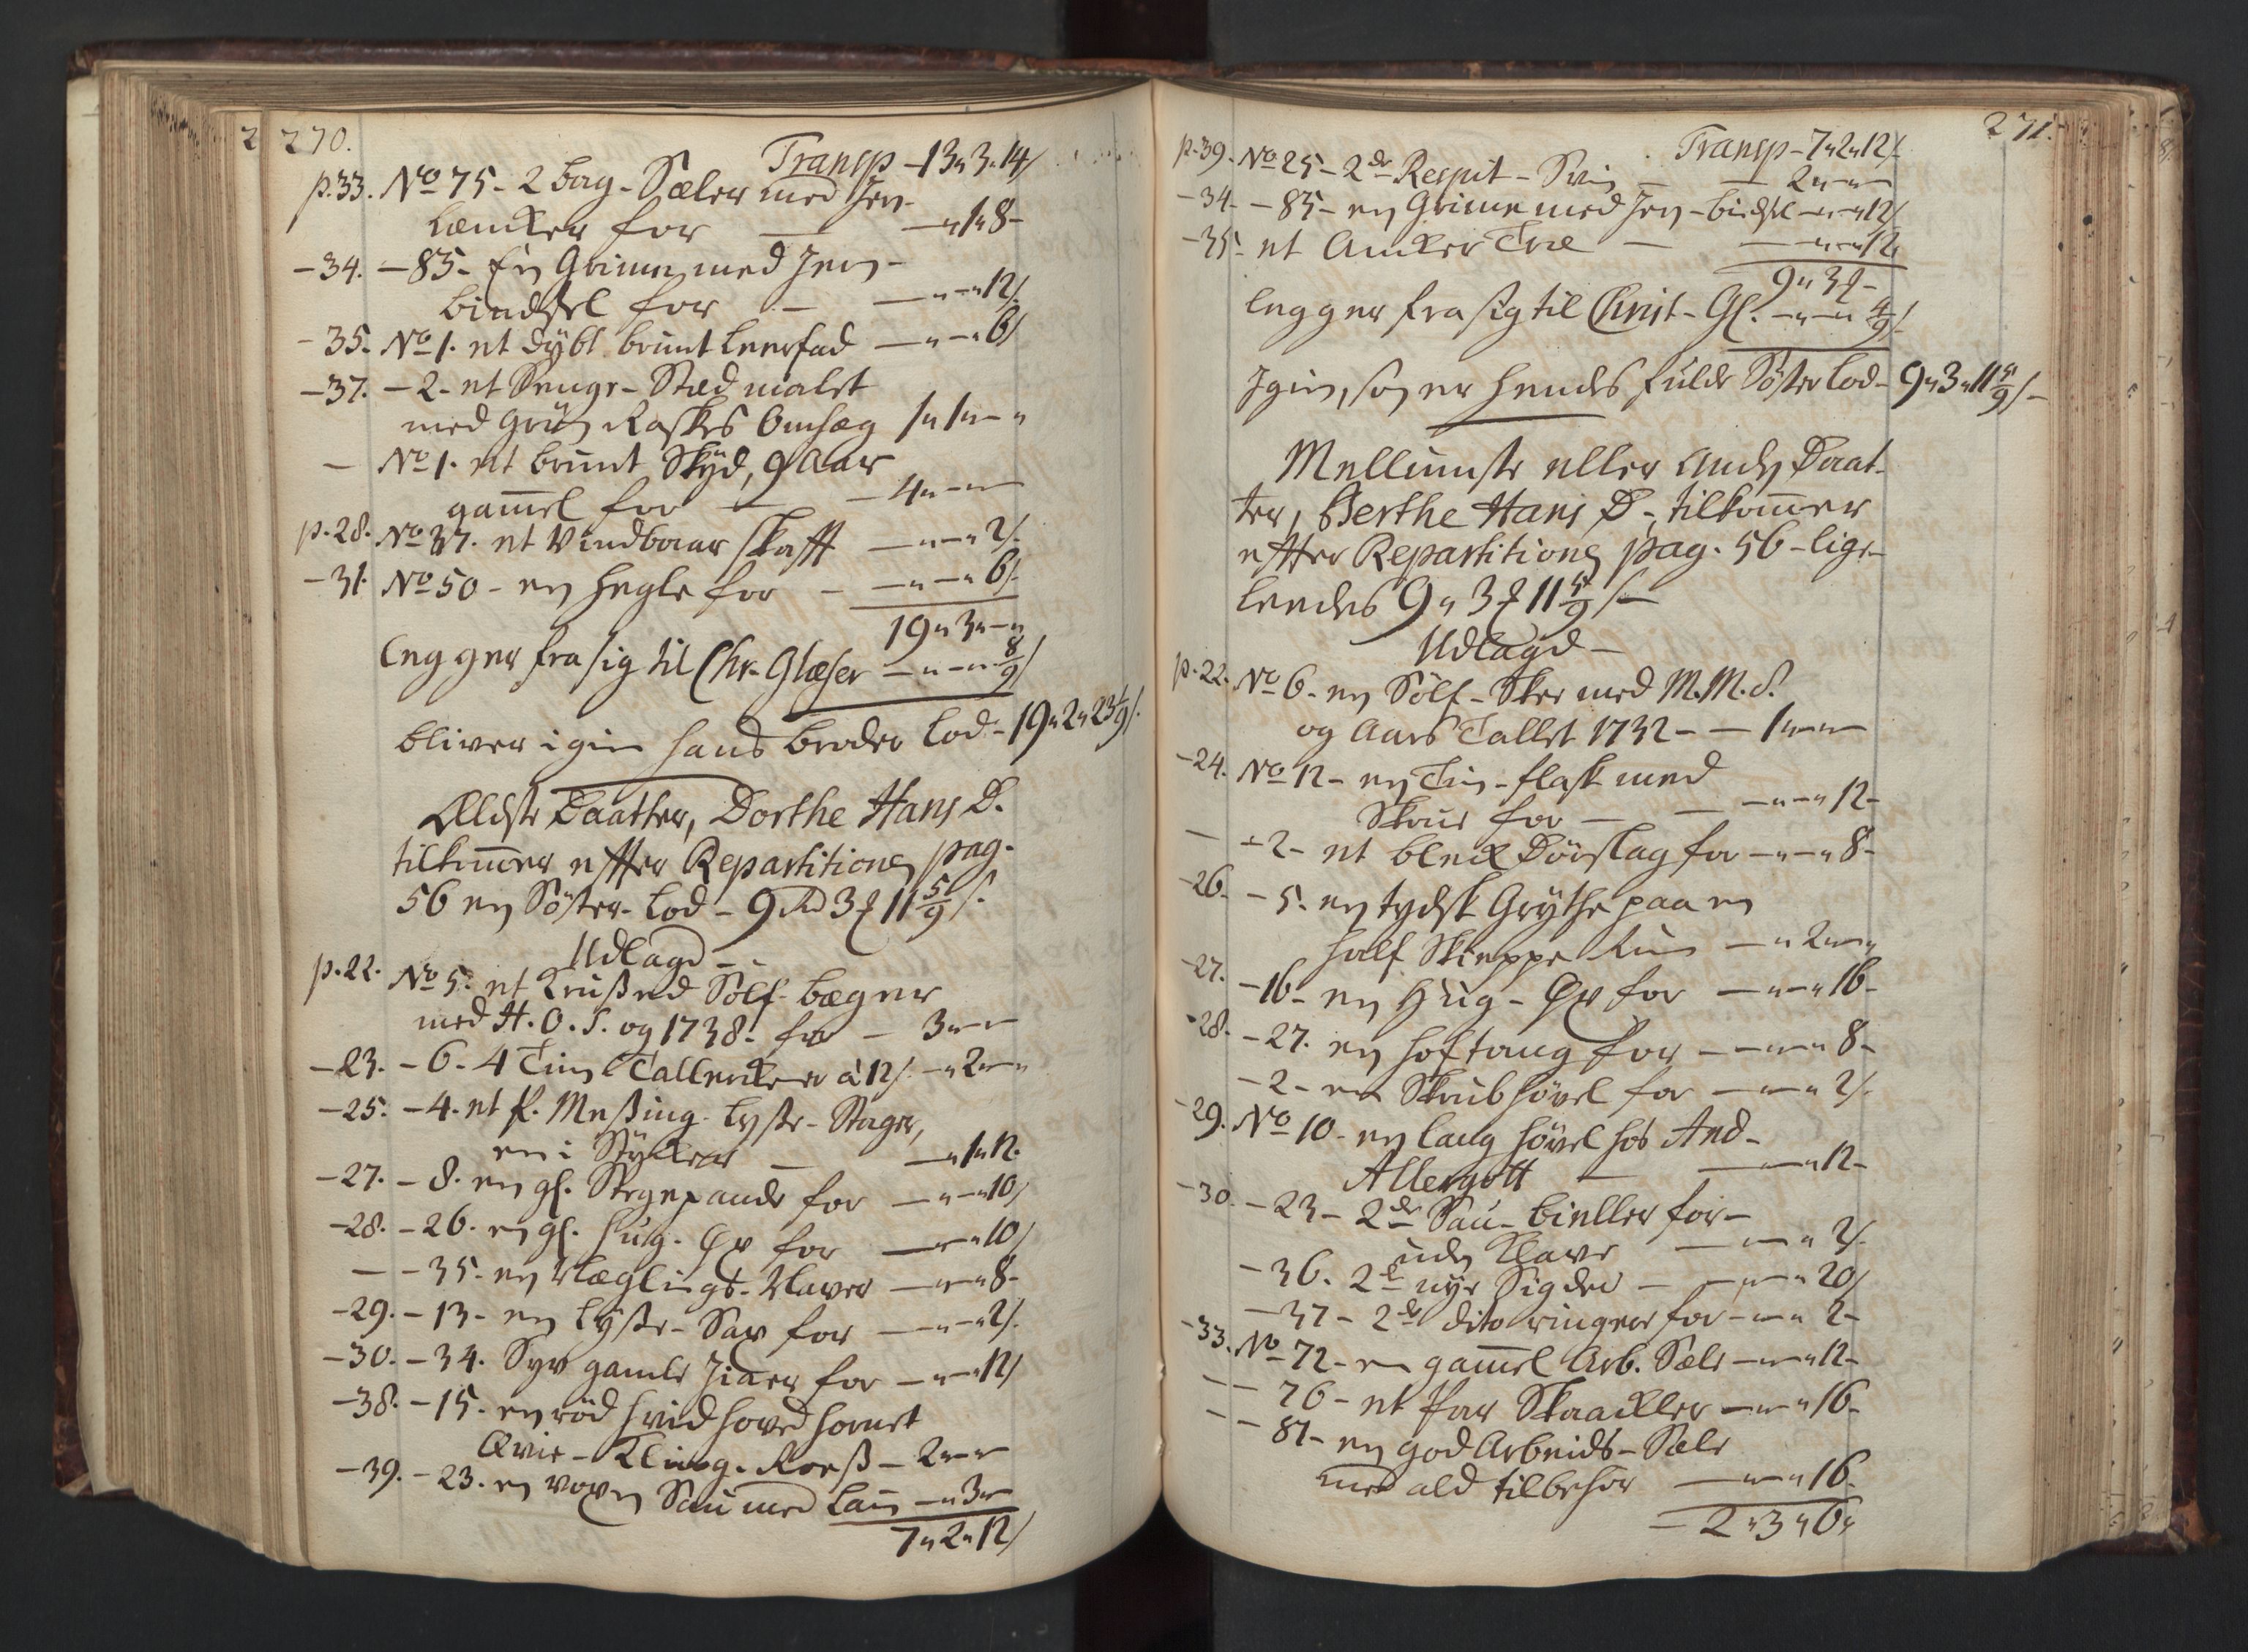 270.
Transp - 13 " 3 " 14 /
p. 33. No 75 - 2 bag - Sæler med Jern-
Lencker for — — " 1 " 8 -
- 34. - 83 - En Grime med Jern-
bindsel for — — " - " 12 /.
- 35. No 1. et dybt brunt Leerfad — " - " 6 /
- 37. - 2 - et Senge - Sted malet
med Grøn Raskes Omhæg 1 " 1 " - "
— No 1. et brunt Øg, 9 Aar
gammel for — — 4 " - " -
p. 28. No 37. et Vindbaar skafft — " - " 2 /.
- 31. No 50 - en Hegle for — — " - " 6 /.
19 " 3 " - "
Legger fra sig til Chr. Glæser — " - " 8/9 /
bliver igien hans broder Lod - 19 " 2 " 23 1/9 /.
Ældste Daatter, Dorthe Hans D.
tilkommer effter Repartitionen pag.
56 en Söster - Lod - 9 Rd 3 ₰ 11 5/9 /.
Udlagd -
p. 22. No 5. et Krused Sölf - bæger
med H. O. S. og 1738. for — 3 " - " -
- 23. - 6 - 4 Tin Tallerkener à 12 /. - " 2 " - "
- 25. - 4. et p. Messing - Lyse - Stager,
en i Stycker — — " 1 " 12.
- 27. - 8. en gl. Stegepande for — " - " 10 /
- 28. - 26. en gl. Hug - Öx for — " - " 10 /
— - 35. en Væglings - Naver — " - " 8 -
- 29. - 13 - en Lyse - Sax for — " - " 2 /.
- 30. - 34. Syv gamle Liaer for — " - " 12 /
- 38. - 15. en rød hvid hoved hornet
Qvie - Kling - Roeß - 2 " - " -
- 39. - 23. en voxen Sau med Lam — " 3 " -
7 " 2 " 12 /
271.
Transp - 7 " 2 " 12 /.
p. 39. No 25 - 2de Respit - Sviin — — 2 " - " -
- 34. - 83 - en Grime med Jern - bindsel — " - " 12 /
- 35. et Ancker Træ — — " - " 12
9 " 3 ₰ -
Legger fra sig til Christ - Gl. — " - " 4/9 /.
Igien, som er hendes fulde Söster Lod - 9 " 3 " 11 5/9 / -
Mellumste eller Anden Daat-
ter, Berthe Hans D -, tilkommer
effter Repartitionen pag. 56 - lige-
leedes 9 " 3 ₰ 11 5/9 / -
Udlagd -
p. 22. No 6 - en Sölf - Skee med M. M. S.
og Aars Tallet 1732 - — 1 " - " -
- 24. No 12 - en Tin - flask med
Skrue for — — — " - " 12 -
— - 2 - et bleck Dörslag for — " - " 8 -
- 26. - 5. en tydsk Grythe paa en
half Skieppe Rum — " 2 " - "
- 27. - 16 - en Hug - Öx for — " - " 16 -
- 28. - 27. en hoftang for — " - " 8 -
- 2 - en Skrubhövel for — " - " 2 /.
- 29. No 10 - en lang hövel hos And-
Allergott — — " - " 12 -
- 30. - 23 - 2de Sau - bieller for -
uden Klave — — " - " 2 /.
- 36. 2de nye Sigder — — " - " 20 /
- 37 - 2de dito ringere for — " - " 2 -
- 33. No 72 - en gammel Arb. Sele — " - " 12 -
— - 76 - et Par Skaackler — " - " 16 -
— - 81 - en god Arbeids - Sele
med ald tilbehör — " - " 16 -
- 2 " 3 " 6 "